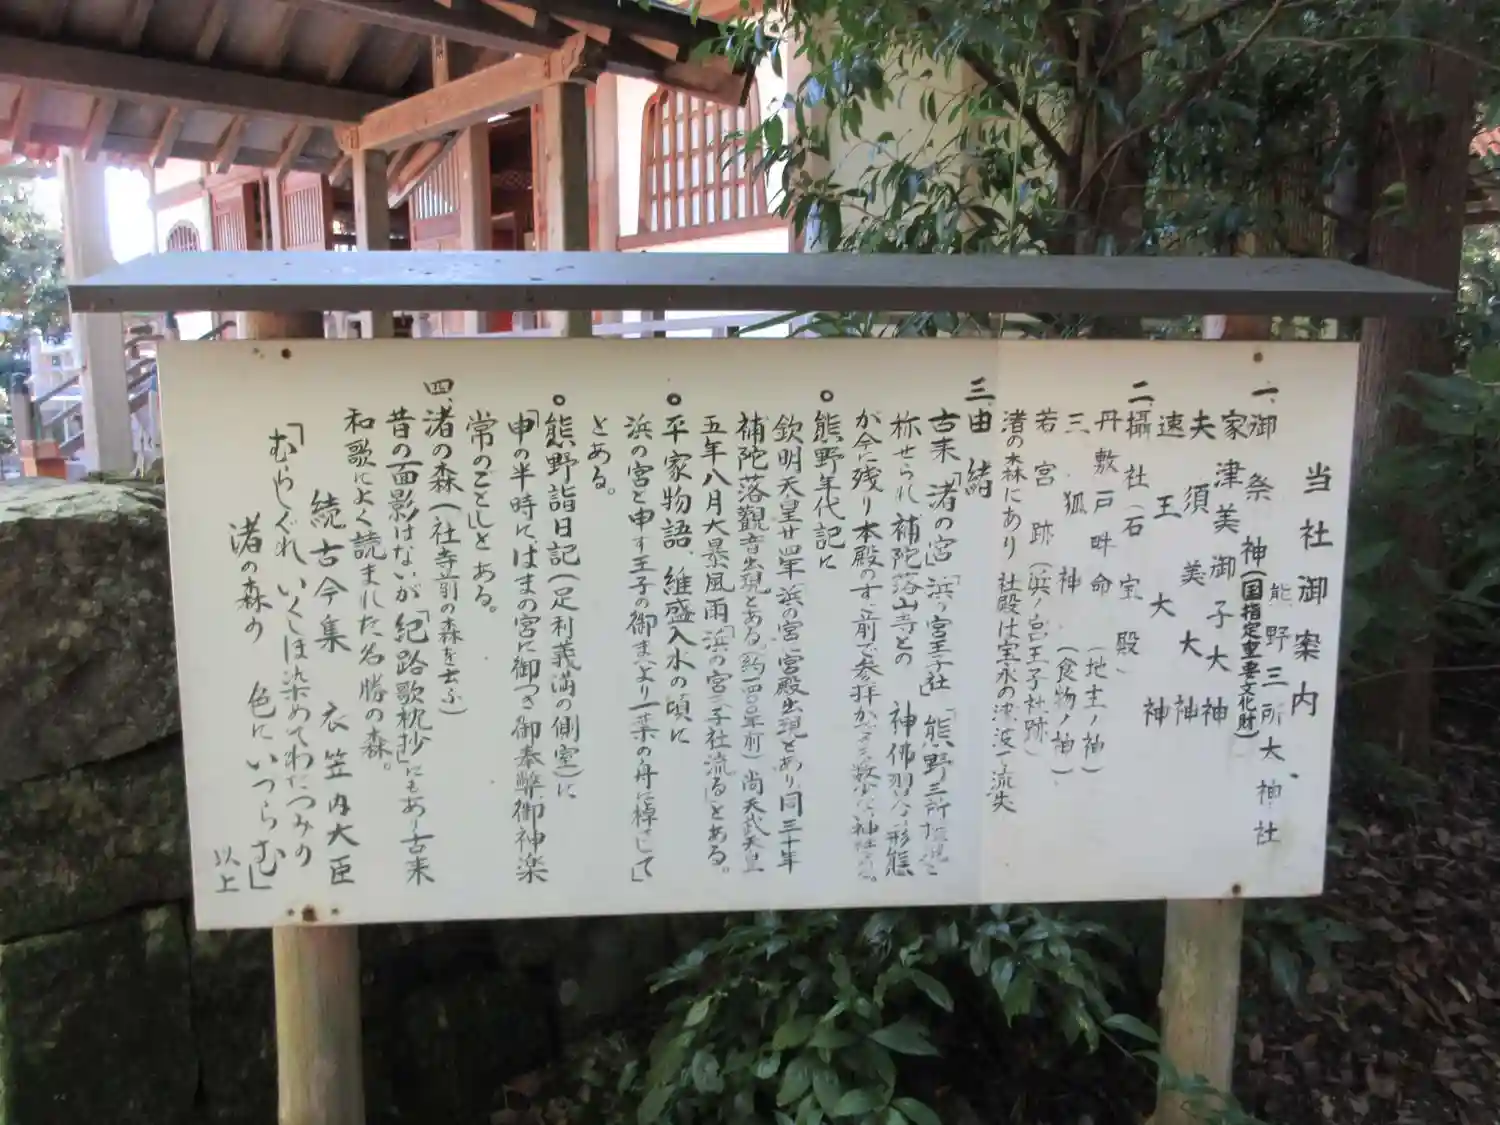 当社御案内
熊野三所大神社
一、御祭神(国指定重要文化財)
家津美御子大神
夫須美大神
速玉大神
二、攝社(石宝殿)
丹敷戸畔命(地主ノ神)
三狐神(食物ノ神)
若宮跡(浜ノ宮王子社跡)
渚の森にあり 社殿は宝永の津波で流失
三、由緒
古来「渚の宮」「浜ノ宮王子社」「熊野三所権現」と
称せられ、補陀落山寺との 神佛習合の形態
が今に残り本殿のすぐ前で参拝ができる数少い神社
熊野年代記に
欽明天皇廿四年浜の宮、宮殿出現とあり、同三十年
補陀落觀音出現とある。(約一四〇〇年前)尚天武天皇
五年八月大暴風雨「浜の宮王子社流る」とある。
平家物語、維盛入水の頃に
浜の宮と申す王子の御まへより一葉の舟に棹さして」
とある。
熊野詣日記(足利義満の側室)に
「申の半時に、はまの宮に御つき御奉幣御神楽
常のごとし」とある。
四、渚の森(社寺前の森を云ふ)
昔の面影はないが「紀路歌枕抄」にもあり古来
和歌によく読まれた名勝の森。
続古今集 衣笠内大臣
「むらしぐれいくしほ染めてわたつみの
渚の森の 色にいつらむ」
以上